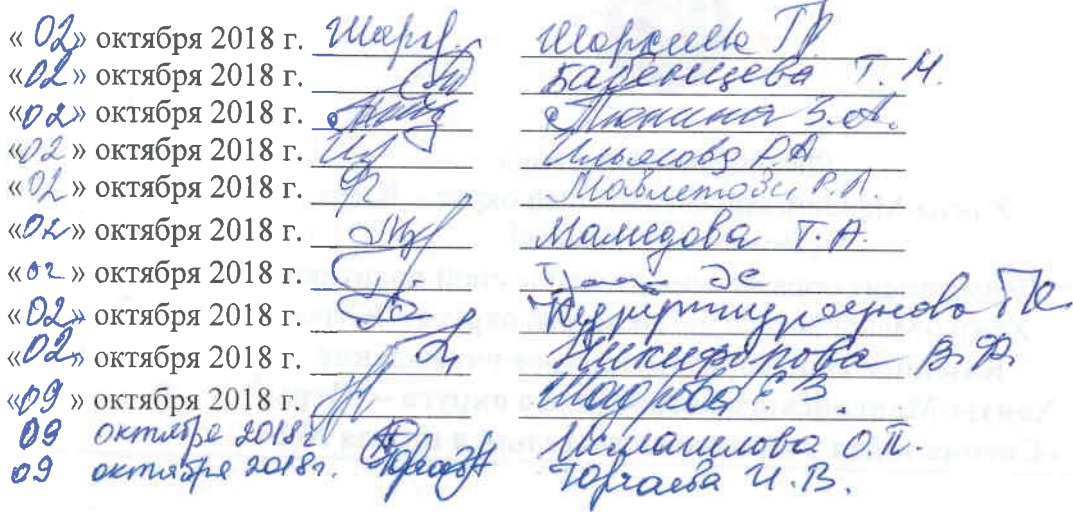 «02» октября 2018 г. Шарк
«02» октября 2018 г. Баренцева Т. М.
«02» октября 2018 г. Тюнина З.А.
«02» октября 2018 г. Ил Ильясова Р.А
«02» октября 2018 г. Мавлетова Р.Л.
«02» октября 2018 г. Мамедова Т.А.
«02» октября 2018 г.
«02» октября 2018 г.
«02» октября 2018 г. Никифорова В.Ф.
«09» октября 2018 г. Шадрова Е.В.
09 октября 2018г. Исмаилова О.П.
09 октября 2018г. Горгаева И.В.